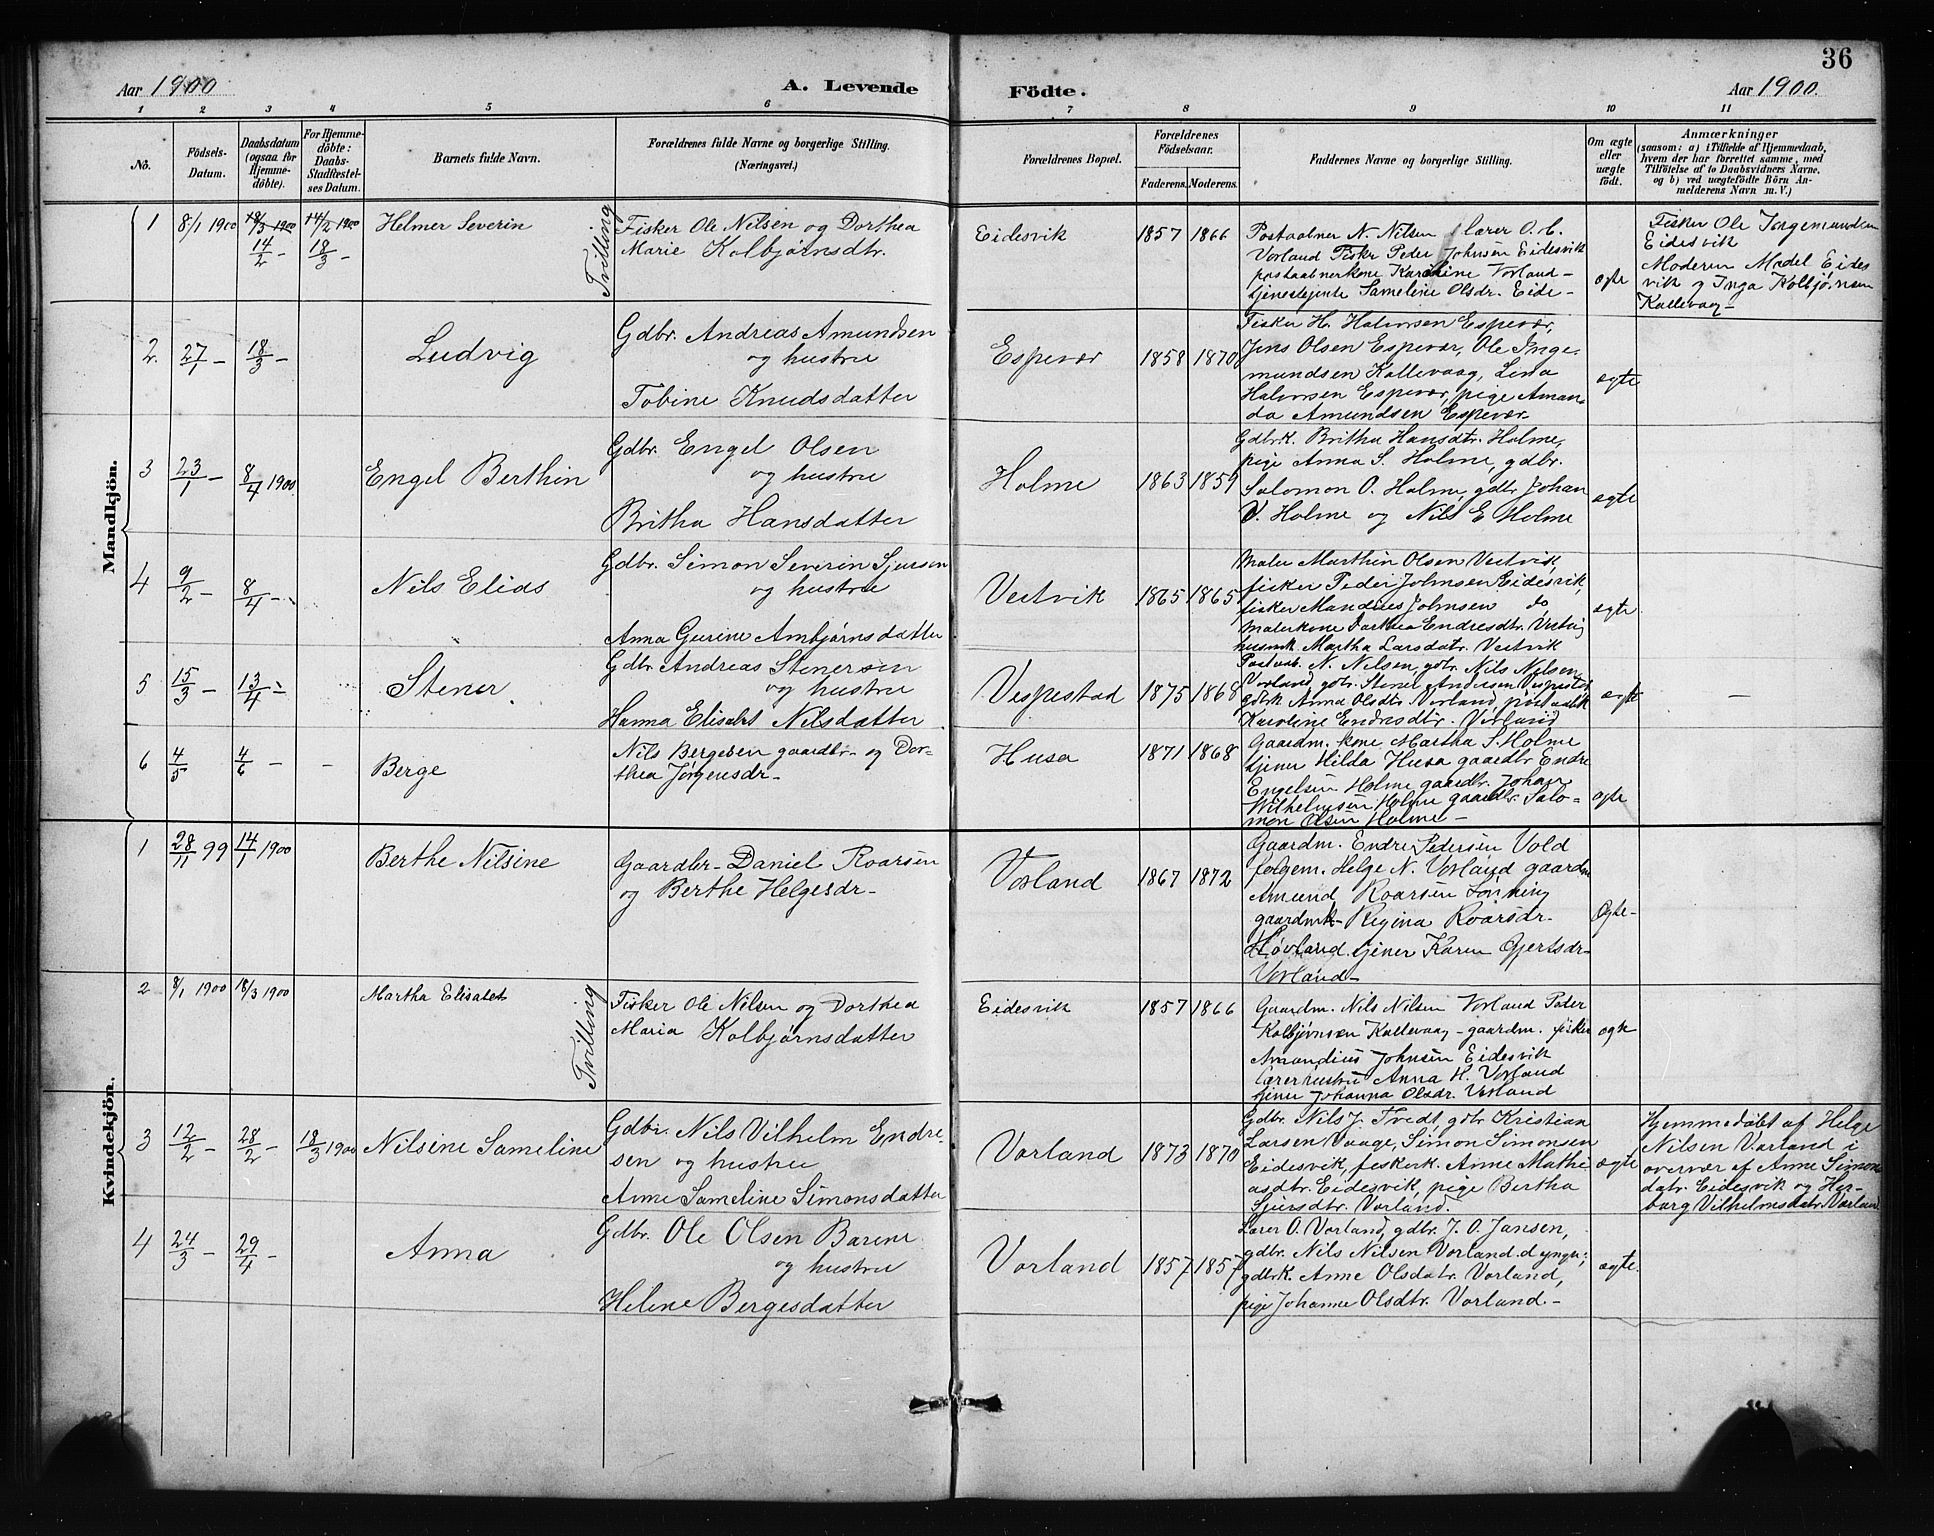 36
Aar 1900 A. Levende Födte. Aar 1900.
1 2 3 4 5 6 7 8 9 10 11
No. Födsels-Datum. Daabsdatum (ogsaa for Hjemmedöbte). For Hjemmedöbte: Daabs-Stadfæstelses Datum. Barnets fulde Navn. Forældrenes fulde Navne og borgerlige Stilling. (Næringsvei.) Forældrenes Bopæl. Forældrenes Födselsaar. Faderens. Moderens. Faddernes Navne og borgerlige Stilling. Om ægte eller uægte födt. Anmærkninger (saasom: a) i Tilfælde af Hjemmedaab, hvem der har forrettet samme, med Tilföielse af to Daabsvidners Navne, og b) ved uægtefödte Börn Anmelderens Navn m. V.)
Mandkjön.
1 8/1 1900 18/3 1900 14/2 1900 Helmer Severin Tvilling Fisker Ole Nilsen og Dorthea
14/2 - 18/3 - Marie Kolbjørnsdtr.
Eidesvik 1857 1866 Postaabner N. Nilsen lærer O. C.
Vorland Fisker Peder Johnsen Eidesvik
postaabnerkone Karoline Vorland -
tjenestejente Sameline Olsdr. Eide -
ægte
Fisker Ole Ingemundsen
Eidesvik
Moderen Madel Eides
vik og Inga Kolbjørnsen
Kallevaag -
2. 27/1 - 18/3 - Ludvig Gdbr. Andreas Amundsen
og hustru
Tobine Knudsdatter
Espevær 1858 1870 Fisker H. Halvorsen Espevær,
Jens Olsen Espevær, Ole Inge-
mundsen Kallevaag, Lina
Halvorsen Espevær, pige Aman-
da Amundsen Espevær
ægte
3 23/1 - 8/4 1900. Engel Berthin Gdbr. Engel Olsen
og hustru
Britha Hansdatter
Holme 1863 1859 Gdbrk. Britha Hansdtr. Holme,
pige Anna S. Holme, gdbr.
Salomon O. Holme, gdbr Johan
V. Holme og Nils E. Holme
ægte
4 9/2 - 8/4 - Nils Elias Gdbr. Simon Severin Sjursen
og hustru
Anna Gurine Ambjørnsdatter
Vestvik 1865 1865 Maler Marthin Olsen Vestvik,
fisker Peder Johnsen Eidesvik,
fisker Mandius Johnsen do
Malerkone Dorthea Endresdtr. Vestvig
husmk Martha Larsdatr. Vestvik
ægte
5 15/3 - 13/4 - Stener. Gdbr. Andreas Stenersen
og hustru
Hanna Elisabet Nilsdatter
Vespestad 1875 1868 Postaab. N. Nilsen, gdbr. Nils Nilsen
Vorland, gdbr. Stener Andersen Vespestad
gdbrk Anna Olsdtr Vorland, postaabk
Karoline Endresdtr. Vorland
ægte -
6 4/5 4/6 - - Berge Nils Bergesen gaardbr- og Dor-
thea Jørgensdr -
Husa 1871 1868 Gaardm. kone Martha S. Holme
tjener Hilda Husa gaardbr Endre
Engelsen Holme gaardbr. Johan
Wilhelmsen Holme gaardbr. Salo-
mon Olsen Holme -
ægte
Kvindekjön.
1 28/11 99 14/1 1900 Berthe Nilsine Gaardbr- Daniel Roarsen
og Berthe Helgesdr -
Vorland 1867 1872 Gaardm. Endre Pedersen Vold
følgem. Helge N. Vorland gaardm
Amund Roarsen Lønning
gaardmk- Regina Roarsdr-
Hovland. tjener Karen Gjertsdr-
Vorland -
Ægte -
2 8/1 1900 18/3 1900 Martha Elisabet Tvilling Fisker Ole Nilsen og Dorthea
Maria Kolbjørnsdatter
Eidesvik 1857 1866 Gaardm. Nils Nilsen Vorland Peder
Kolbjørnsen Kallevaag - gaardm. fisker
Amandius Johnsen Eidesvik
lærerhustru Anna H. Vorland
tjener Johanna Olsdr. Vorland
ægte
3 12/2 - 28/2 - 18/3 1900 Nilsine Sameline Gdbr. Nils Vilhelm Endre-
sen og hustru
Anne Sameline Simonsdatter
Vorland 1873 1870 Gdbr. Nils J. Tvedt, gdbr Kristian
Larsen Vaage, Simon Simonsen
Eidesvik, feskerk. Anne Mathi
asdtr. Eidesvik, pige Bertha
Sjursdtr. Vorland.
ægte
Hjemmedøbt af Helge
Nilsen Vorland i
overvær af Anne Simons
datr. Eidesvik og Her-
borg Vilhelmsdatr. Vorland
4 24/3 - 29/4 - Anna Gdbr. Ole Olsen Barene
og hustru
Helene Bergesdatter
Vorland 1857 1857 Lærer O. Vorland, gdbr. J. O. Jansen,
gdbr. Nils Nilsen Vorland d yngr.;
gdbrk. Anne Olsdatr. Vorland,
pige Johanne Olsdtr. Vorland. -
ægte.